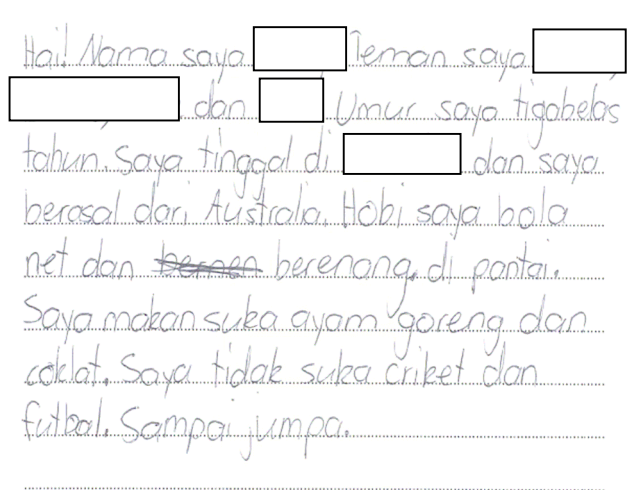 Hai! Nama saya Teman saya
dan Umur saya tigabelas
tahun. Saya tinggal di dan saya
berasal dari Australia. Hobi saya bola
net dan bernen berenang. di pantai.
Saya makan suka ayam goreng dan
coklat. Saya tidak suka criket dan
futbal. Sampai jumpa.